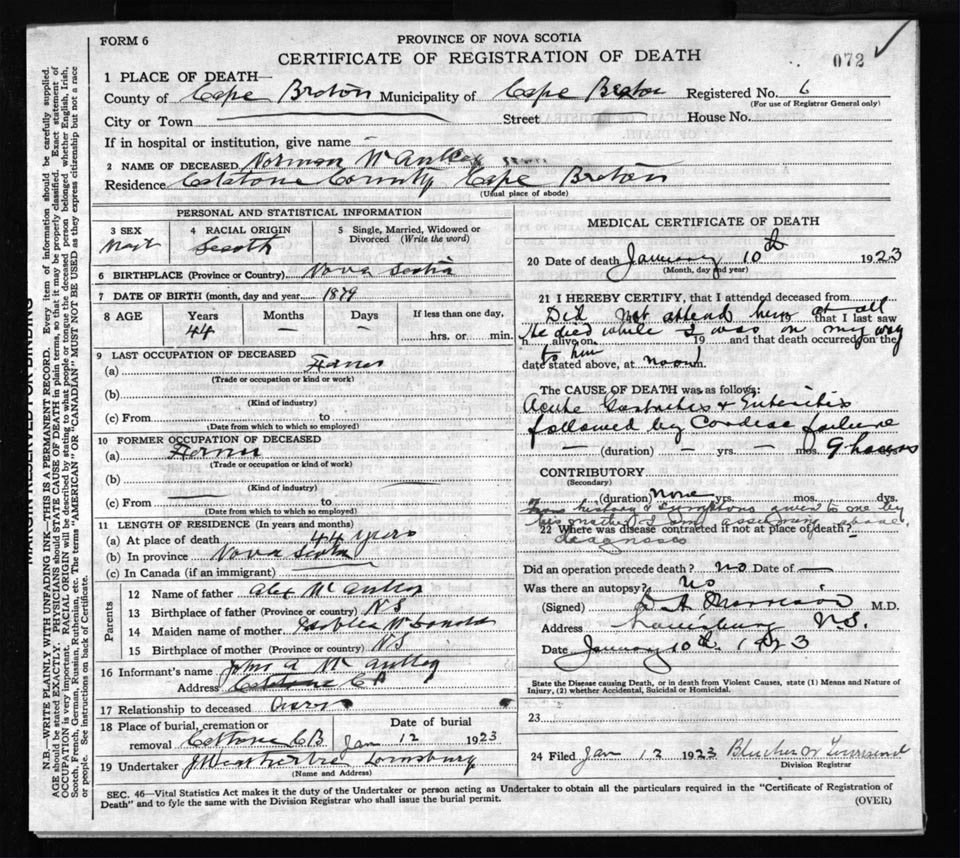 FORM 6
PROVINCE OF NOVA SCOTIA
CERTIFICATE OF REGISTRATION OF DEATH
072 ✓
1 PLACE OF DEATH—
County of Cape Breton Municipality of Cape Breton Registered No. 6
(For use of Registrar General only)
City or Town Street House No.
If in hospital or institution, give name
2 NAME OF DECEASED Norman
Residence County Cape Breton
(Usual place of abode)
PERSONAL AND STATISTICAL INFORMATION
3 SEX
4 RACIAL ORIGIN
5 Single, Married, Widowed or Divorced (Write the word)
6 BIRTHPLACE (Province or Country) Nova Scotia
7 DATE OF BIRTH (month, day and year 1879
8 AGE Years Months Days If less than one day,
44 — — hrs. or min.
9 LAST OCCUPATION OF DECEASED
(a)
(Trade or occupation or kind or work)
(b)
(Kind of industry)
(c) From to
(Date from which to which so employed)
10 FORMER OCCUPATION OF DECEASED
(a)
(Trade or occupation or kind of work)
(b)
(Kind of industry)
(c) From to
(Date from which to which so employed)
11 LENGTH OF RESIDENCE (In years and months)
(a) At place of death 44 years
(b) In province Nova Scotia
(c) In Canada (if an immigrant)
Parents
12 Name of father Alex
13 Birthplace of father (Province or country) N S
14 Maiden name of mother McDonald
15 Birthplace of mother (Province or country) N S
16 Informant's name John A
Address C B
17 Relationship to deceased
18 Place of burial, cremation or removal C B
Date of burial
Jan 12 1923
19 Undertaker Louisburg
(Name and Address)
MEDICAL CERTIFICATE OF DEATH
20 Date of death January 10th 1923
(Month, day and year)
21 I HEREBY CERTIFY, that I attended deceased from
Did not attend him at all
19 that I last saw
he died while I was on my way
h alive on 19 and that death occurred on the
to him
date stated above, at noon m.
The CAUSE OF DEATH was as follows:
Acute Gastritis & Enteritis
followed by Cardiac failure
(duration) — yrs. mos. 9 hours
CONTRIBUTORY
(Secondary)
(duration) None yrs. mos. dys.
From history & symptoms given to me by
his mother I am assuming above
22 Where was disease contracted if not at place of death?
diagnosis
Did an operation precede death? No Date of —
Was there an autopsy? No
(Signed) D A Morrison M.D.
Address Louisburg N.S.
Date January 10th. 1923
State the Disease causing Death, or in death from Violent Causes, state (1) Means and Nature of Injury, (2) whether Accidental, Suicidal or Homicidal.
23
24 Filed Jan 12 1923 Townsend
Division Registrar
SEC. 46—Vital Statistics Act makes it the duty of the Undertaker or person acting as Undertaker to obtain all the particulars required in the "Certificate of Registration of
Death" and to fyle the same with the Division Registrar who shall issue the burial permit.
(OVER)
MARGIN RESERVED FOR BINDING
N.B.—WRITE PLAINLY WITH UNFADING INK—THIS IS A PERMANENT RECORD. Every item of information should be carefully supplied.
AGE should be stated EXACTLY. PHYSICIANS should STATE CAUSE OF DEATH in plain terms, so that it may be properly classified. Exact statement of
OCCUPATION is very important. RACIAL ORIGIN will be described by stating to what people or tongue the deceased person belonged whether English, Irish,
Scotch, French, German, Russian, Ruthenian, etc. The terms "AMERICAN" OR "CANADIAN" MUST NOT BE USED as they express citizenship but not a race
or people. See instructions on back of Certificate.